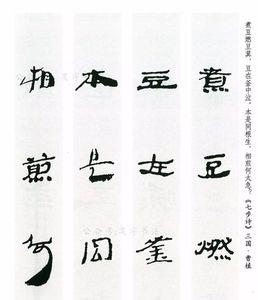 煮豆燃豆萁，豆在釜中泣。本是同根生，相煎何太急？《七步诗》三国·曹植
煮豆燃
豆在釜
本是同
相煎何